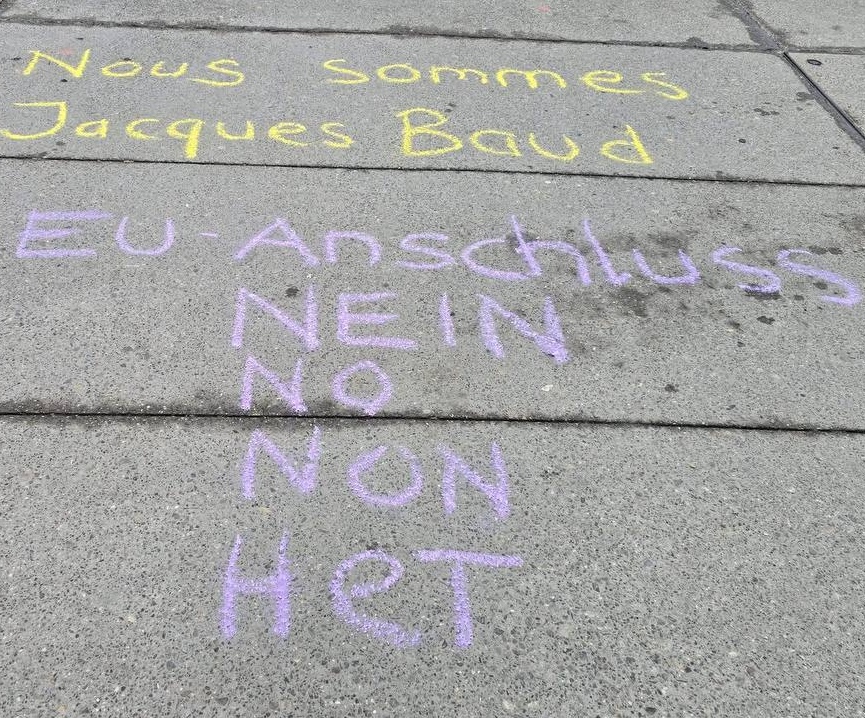 Nous sommes
Jacques Baud
EU-Anschluss
NEIN
NO
NON
НеТ